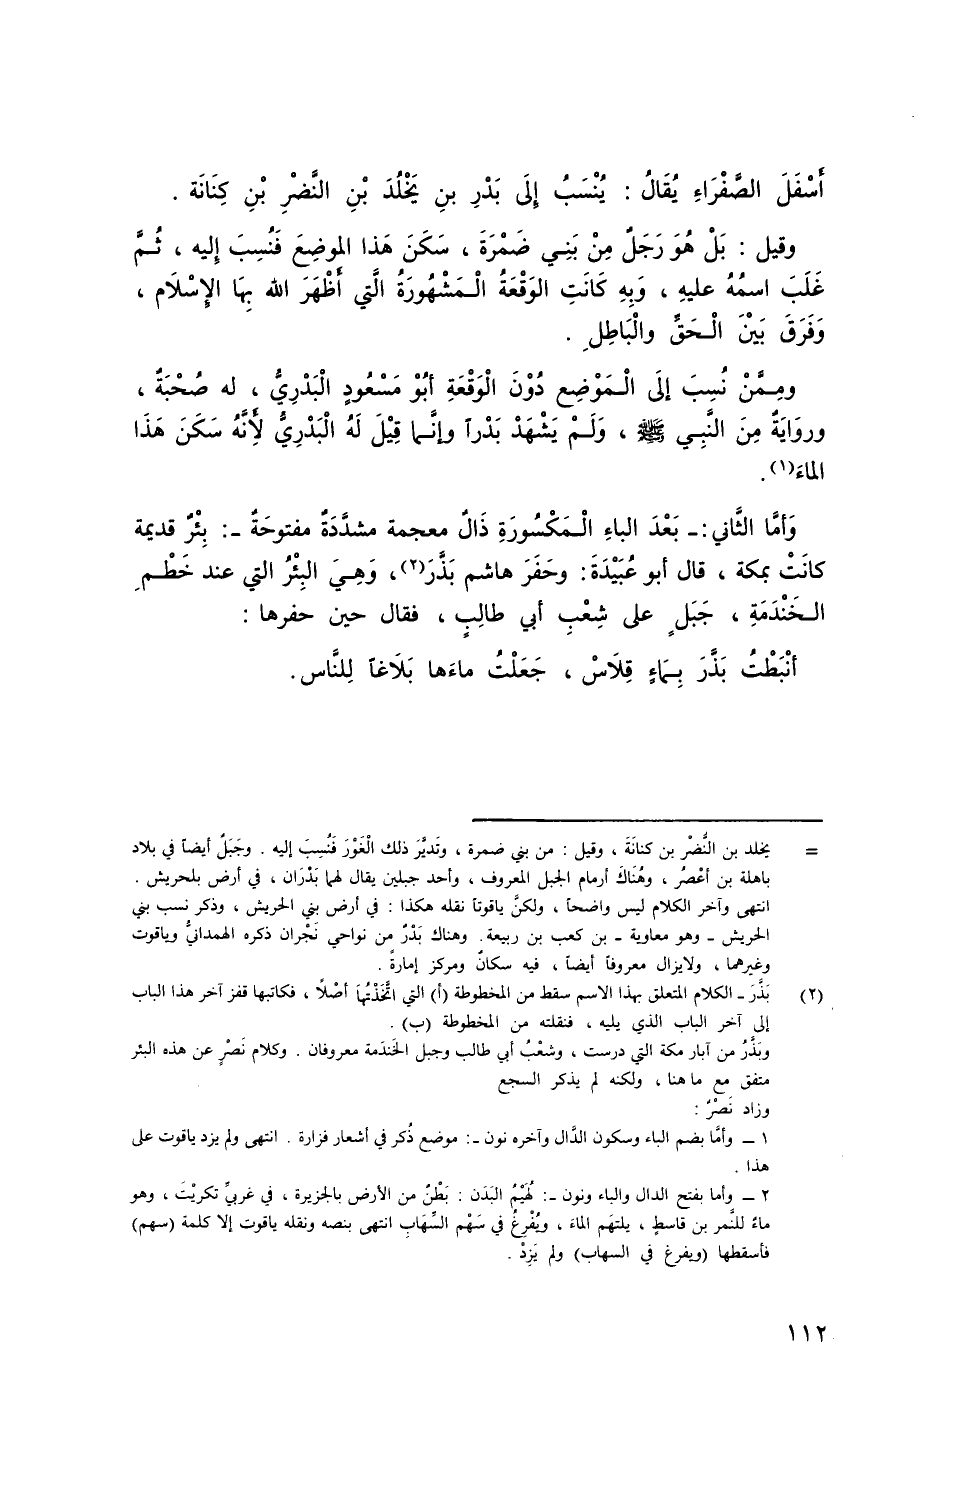 أَسْفَلَ الصَّفْرَاءِ يُقَالُ : يُنْسَبُ إِلَى بَدْرِ بنِ يَخْلُدَ بْنِ النَّضْرِ بْنِ كِنَانَة .
وقيل : بَلْ هُوَ رَجَلٌ مِنْ بَنِي ضَمْرَةَ ، سَكَنَ هَذا الموضِعَ فَنُسِبَ إليه ، ثُمَّ
غَلَبَ اسمُهُ عليهِ ، وَبِهِ كَانَتِ الوَقْعَةُ الْمَشْهُورَةُ الَّتي أَظْهَرَ الله بِهَا الإِسْلَام ،
وَفَرَقَ بَيْنَ الْحَقِّ والْبَاطِلِ .
ومِمَّنْ نُسِبَ إِلَى الْمَوْضِعِ دُوْنَ الْوَقْعَةِ أَبُوْ مَسْعُودٍ الْبَدْرِيُّ ، له صُحْبَةٌ ،
ورِوَايَةٌ مِنَ النَّبِي ﷺ ، وَلَمْ يَشْهَدْ بَدْراً وإنَّما قِيْلَ لَهُ الْبَدْرِيُّ لأَنَّهُ سَكَنَ هَذَا
الماءَ(١).
وَأمَّا الثَّاني :ـ بَعْدَ الباءِ الْمَكْسُورَةِ ذَالٌ معجمة مشدَّدَةٌ مفتوحَةٌ ـ: بِئْرٌ قديمة
كانَتْ بمكة ، قال أبو عُبَيْدَةَ : وحَفَرَ هاشم بَذَّرَ(٢)، وَهِيَ البِئْرُ التي عند خَطْمِ
الخَنْدَمَةِ ، جَبَلٍ على شِعْبِ أبي طالِبٍ ، فقال حين حفرها :
أنْبَطْتُ بَذَّرَ بِمَاءٍ قِلَاسْ ، جَعَلْتُ ماءَها بَلَاغاً لِلنَّاس .
= يخلد بن النَّضْر بن كنانَة ، وقيل : من بني ضمرة ، وتَديَّرَ ذلك الْغَوْرَ فَنُسِبَ إليه . وجَبَلٌ أيضاً في بلاد
باهلة بن أعْصُر ، وهُنَاكَ أرمام الجبل المعروف ، وأحد جبلين يقال لهما بَدْرَان ، في أرض بلحريش .
انتهى وآخر الكلام ليس واضحاً ، ولكنَّ ياقوتاً نقله هكذا : في أرض بني الحريش ، وذكر نسب بني
الحريش ـ وهو معاوية ـ بن كعب بن ربيعة. وهناك بَدْرٌ من نواحي نَجْران ذكره الهمدانيُّ وياقوت
وغيرهما ، ولايزال معروفاً أيضاً ، فيه سكانٌ ومركز إمارةٌ .
(٢) بَذَّرَ ـ الكلام المتعلق بهذا الاسم سقط من المخطوطة (أ) التي اتَّخَذْتُهَا أصْلاً ، فكاتبها قفز آخر هذا الباب
إلى آخر الباب الذي يليه ، فنقلته من المخطوطة (ب) .
وبَذَّرُ من آبار مكة التي درست ، وشعْبُ أبي طالب وجبل الخَندَمة معروفان . وكلام نَصْرٍ عن هذه البئر
متفق مع ما هنا ، ولكنه لم يذكر السجع
وزاد نَصْرٌ :
١ ــ وأمَّا بضم الباء وسكون الدَّال وآخره نون ـ: موضع ذُكر في أشعار فزارة . انتهى ولم يزد ياقوت على
هذا .
٢ ــ وأما بفتح الدال والباء ونون ـ: لُهَيْمُ البَدَن : بَطْنٌ من الأرض بالجزيرة ، في غربيِّ تكريْتَ ، وهو
ماءٌ للنَّمر بن قاسطٍ ، يلتهَم الماءَ ، ويُفْرِغُ في سَهْم السِّهَابِ انتهى بنصه ونقله ياقوت إلا كلمة (سهم)
فأسقطها (ويفرغ في السهاب) ولم يَزِدْ .
١١٢